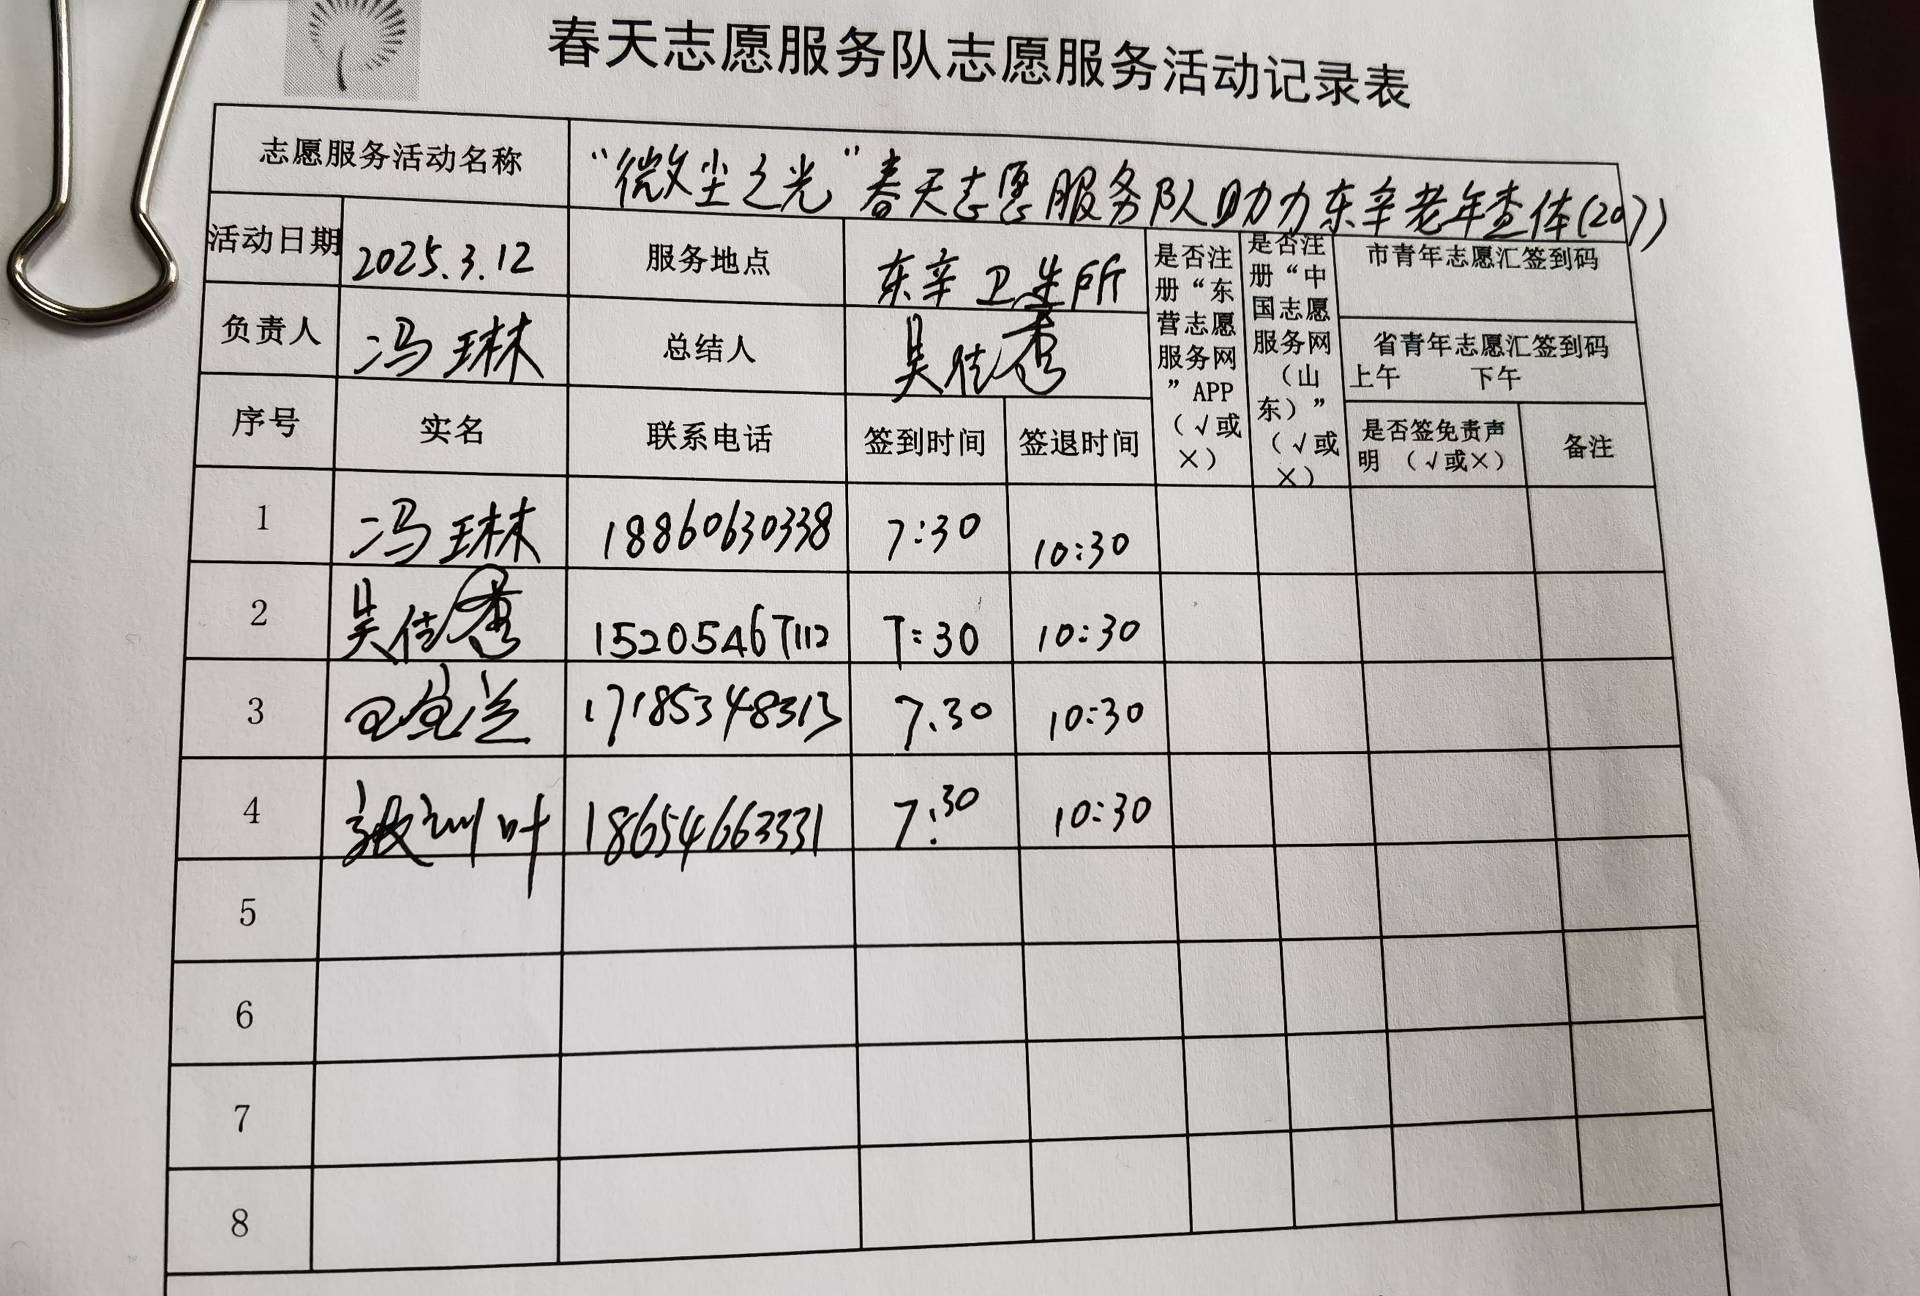 春天志愿服务队志愿服务活动记录表
志愿服务活动名称 “微尘之光”春天志愿服务队助力东辛老年查体(207)
活动日期 2025.3.12 服务地点 东辛卫生所
负责人 冯琳 总结人 吴佳秀
是否注册“东营志愿服务网”APP（√或×）
是否注册“中国志愿服务网（山东）”（√或×）
市青年志愿汇签到码
省青年志愿汇签到码
上午 下午
序号 实名 联系电话 签到时间 签退时间 是否签免责声明（√或×） 备注
1 冯琳 18860630338 7:30 10:30
2 吴佳秀 15205467112 7:30 10:30
3 17185348313 7.30 10:30
4 叶 18654663331 7:30 10:30
5
6
7
8